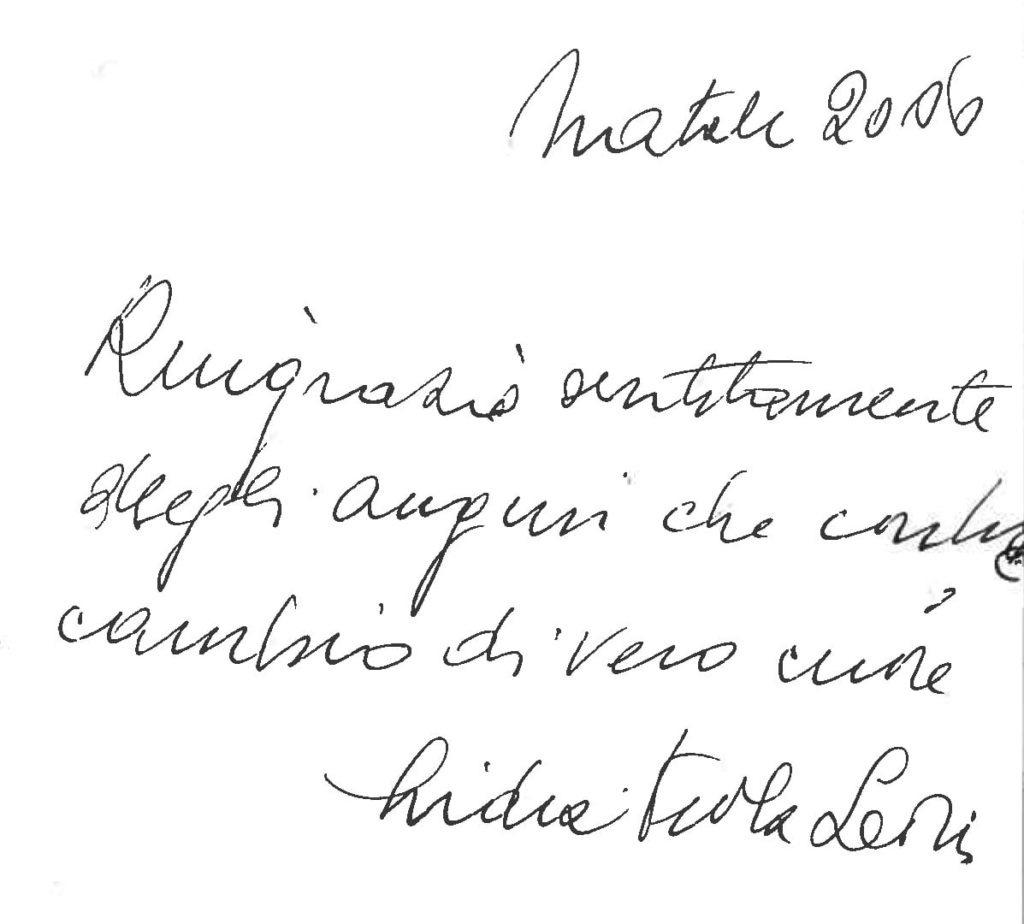 Natale 2006
Ringrazio sentitamente
degli auguri che contra
cambio di vero cuore
Lidia